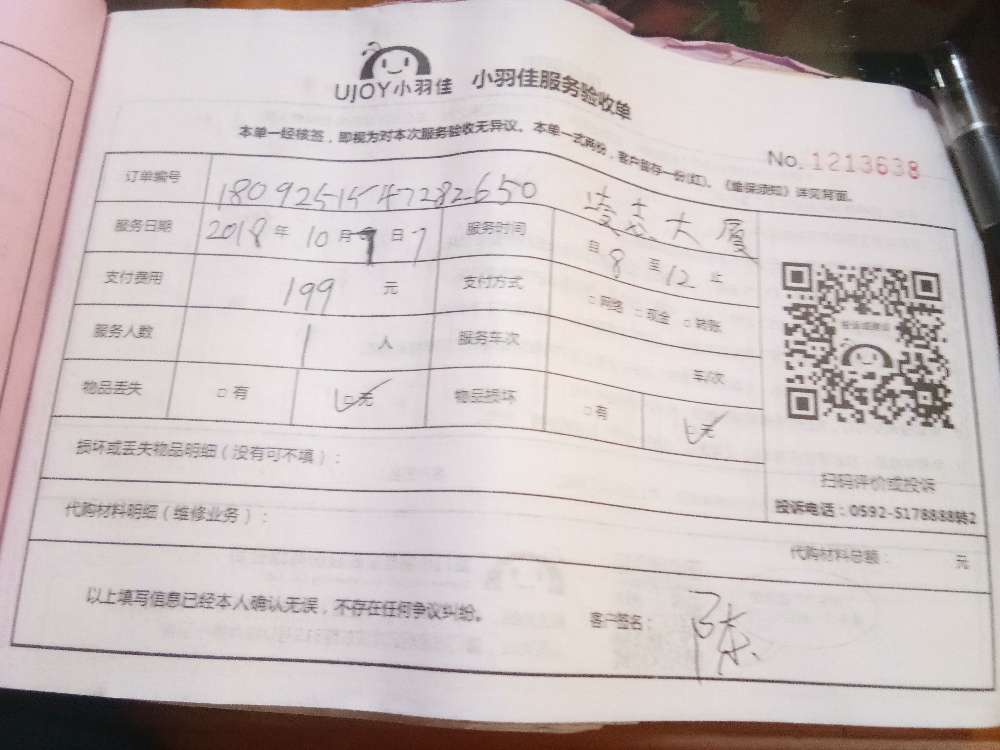 UJOY小羽佳 小羽佳服务验收单
本单一经核签，即视为对本次服务验收无异议。本单一式两份，客户留存一份(红)。《维保须知》详见背面。
No. 1213638
订单编号 1809251547282650 大厦
服务日期 2018年 10月 日 7 服务时间 自 8 至 12 止
支付费用 199 元 支付方式 □网络 □现金 □转账
服务人数 1 人 服务车次 车/次
物品丢失 □有 □无 物品损坏 □有 □无
损坏或丢失物品明细（没有可不填）：
投诉或建议
扫码评价或投诉
投诉电话：0592-5178888转2
代购材料明细（维修业务）：
代购材料总额： 元
以上填写信息已经本人确认无误，不存在任何争议纠纷。 客户签名： 陈